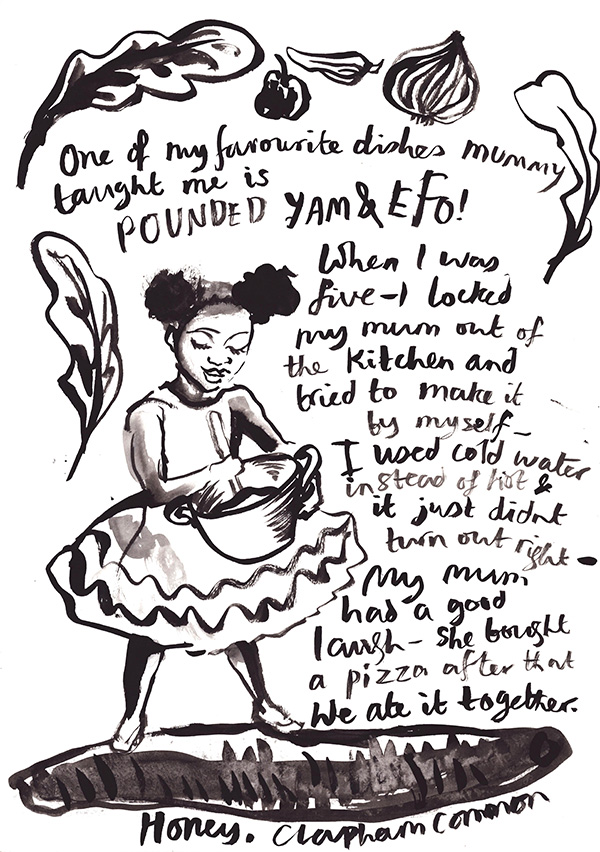 One of my favourite dishes mummy
taught me is
POUNDED YAM & EFO!
When I was
five - I locked
my mum out of
the Kitchen and
tried to make it
by myself -
I used cold water
instead of hot &
it just didnt
turn out right -
My mum
had a good
laugh - she bought
a pizza after that
We ate it together.
Honey. Clapham Common